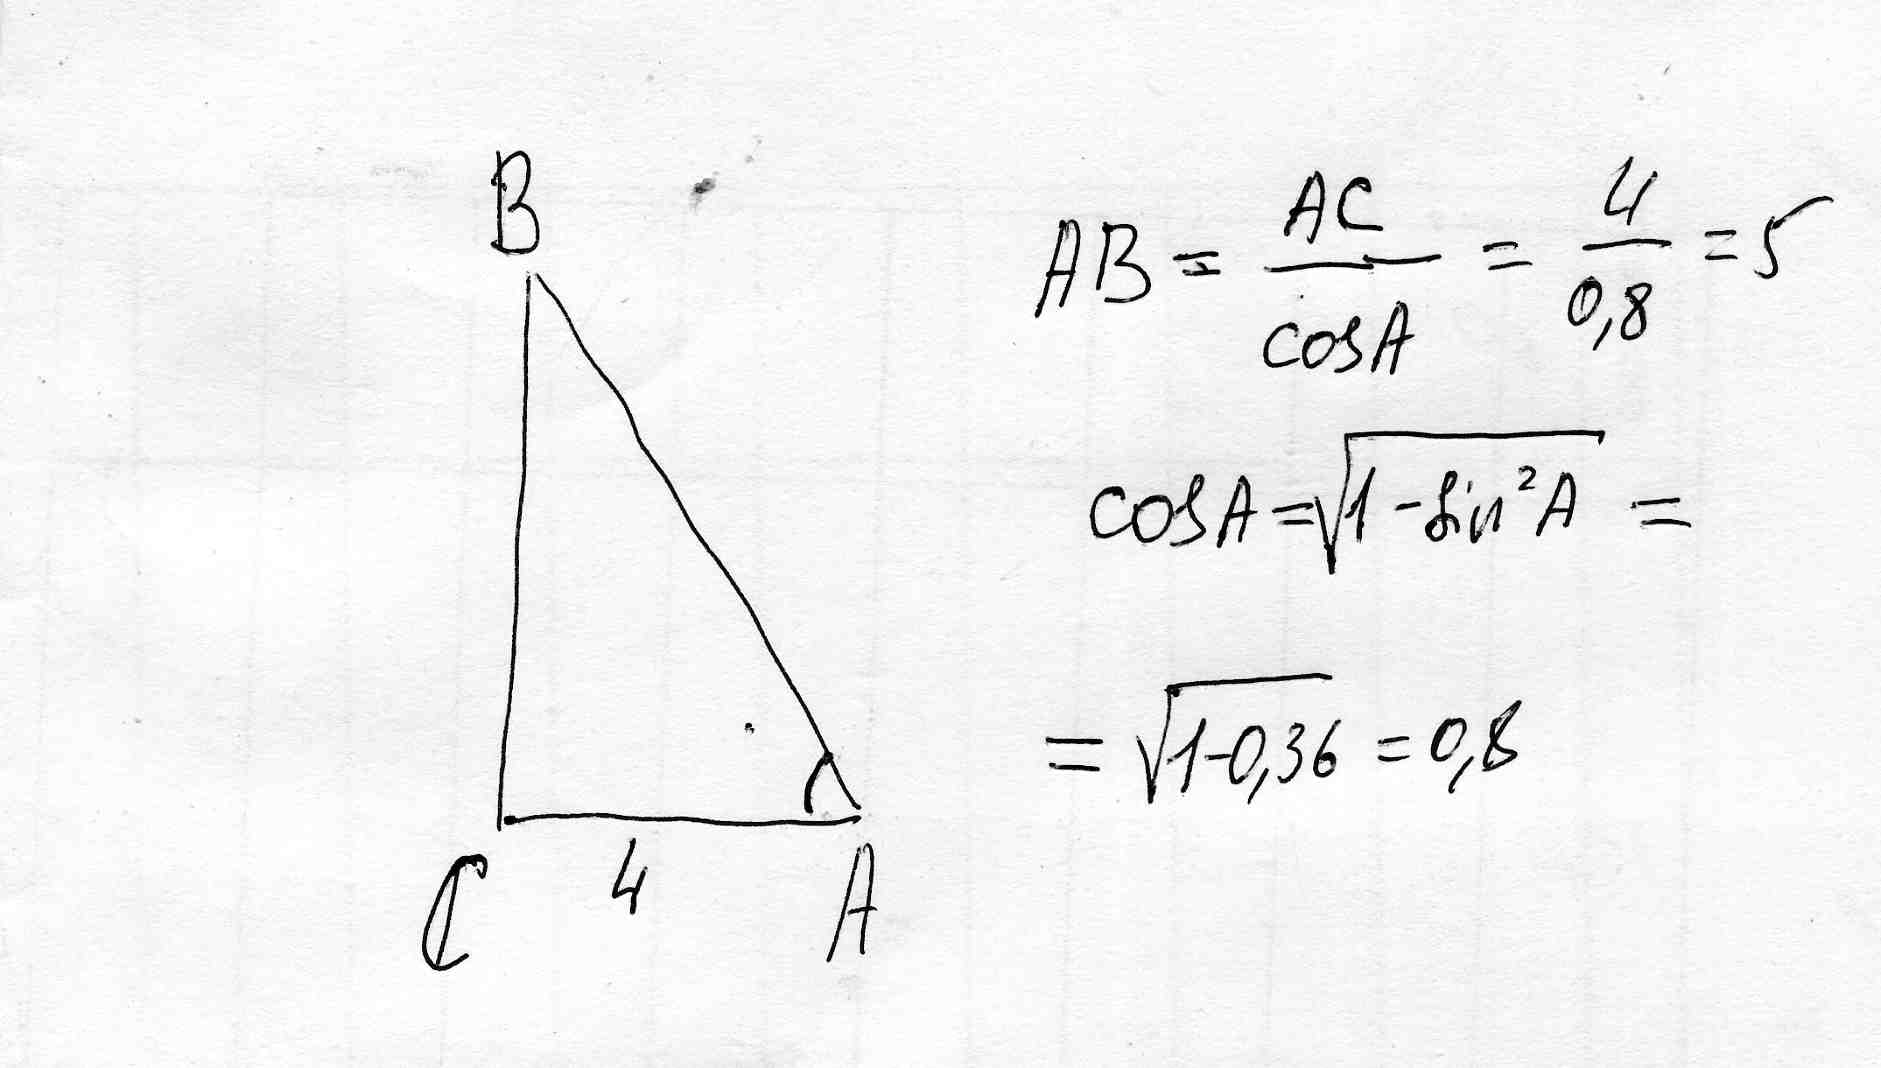 B
C 4 A
AB = AC / cosA = 4 / 0,8 = 5
cosA = √(1 - sin²A) =
= √(1-0,36) = 0,8